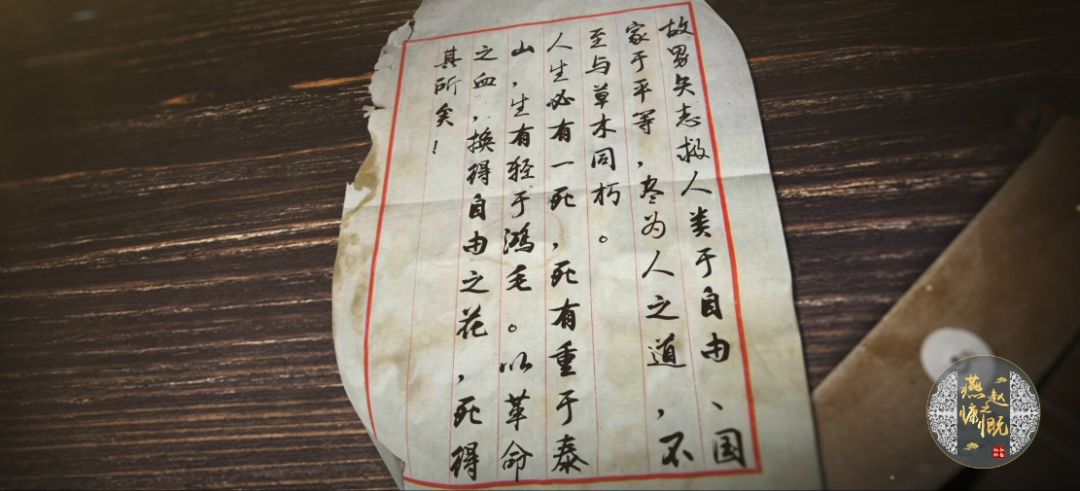 故男矢志救人类于自由、国
家于平等，尽为人之道，不
至与草木同朽。
人生必有一死，死有重于泰
山，生有轻于鸿毛。以革命
之血，换得自由之花，死得
其所矣！
燕赵之慷慨